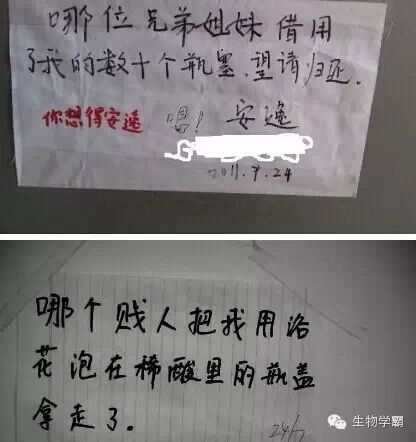 哪位兄弟姐妹借用
了我的数十个瓶墨,望请归还.
你想得安逸
安逸
2011.9.24
哪个贱人把我用洛
花泡在稀酸里的瓶盖
拿走了.
24/9
生物学霸